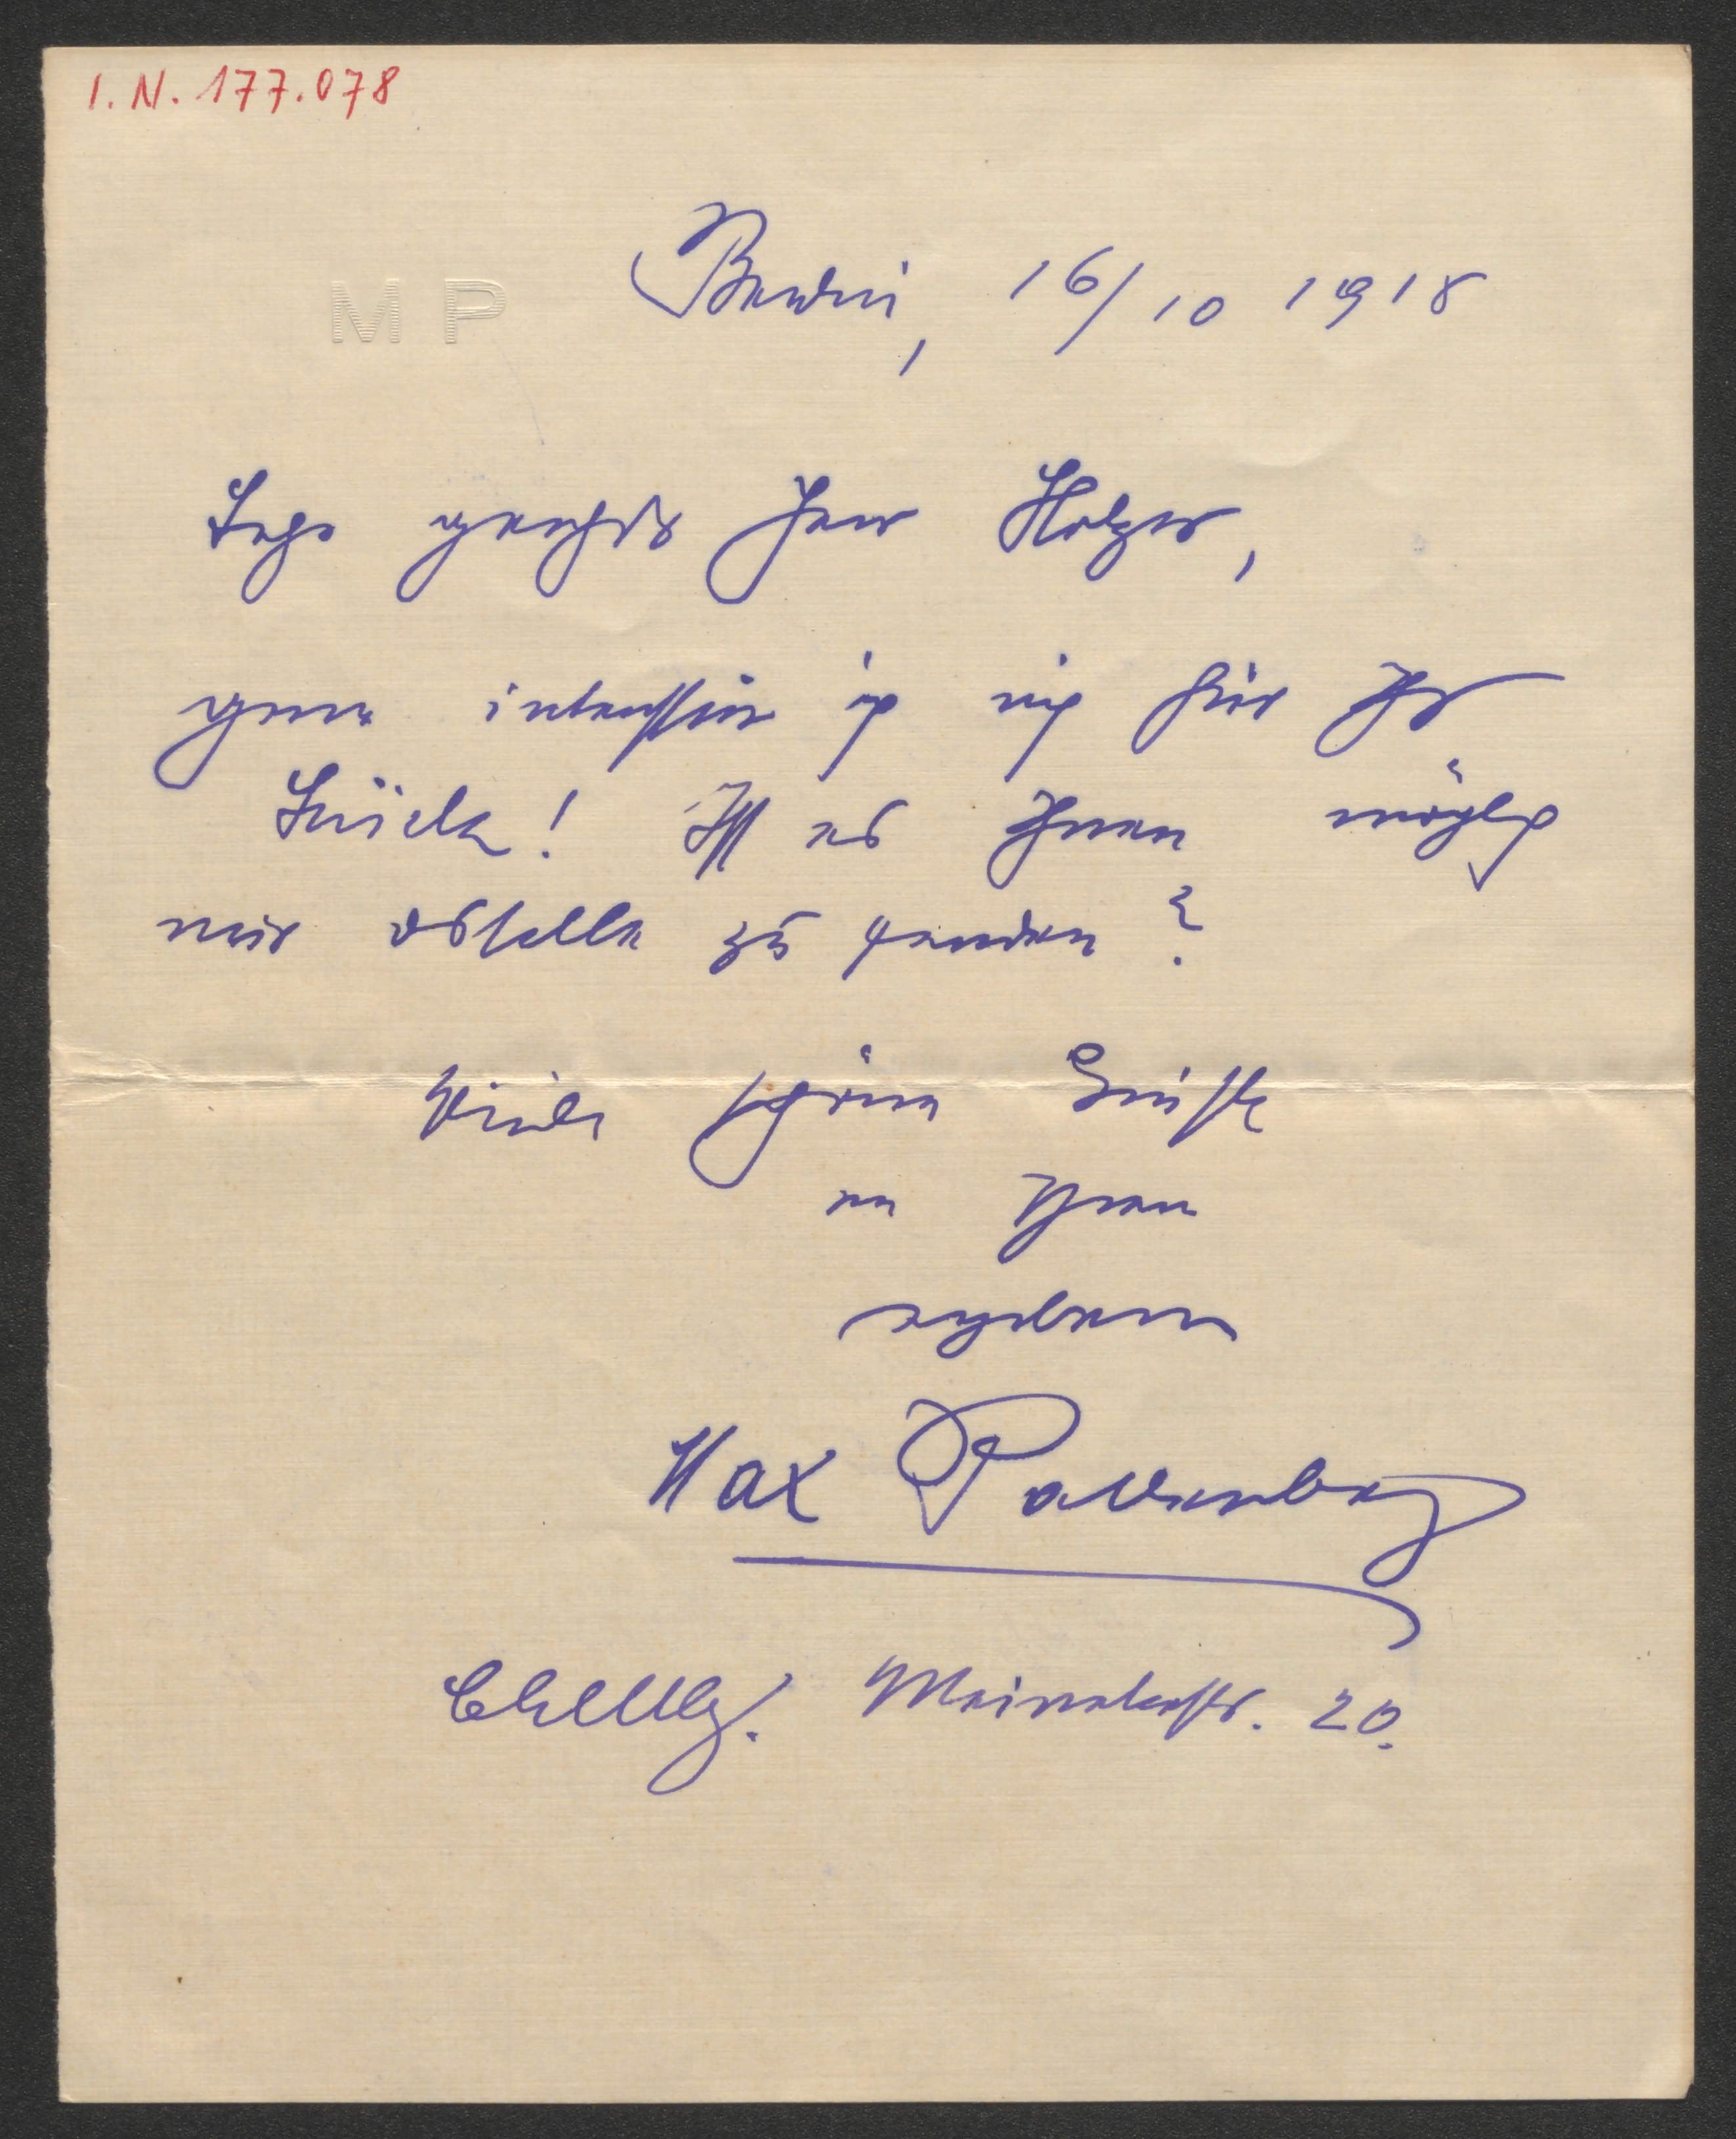 I. N. 177.078
M P
Berlin, 16/10 1918
Sehr geehrter Herr Holzer,
gerne interessire ich mich für Ihr
Stück! Ist es Ihnen möglich
mir dasselbe zu senden?
Viele schöne Grüße
an Ihren
ergebenen
Max Pallenberg
Meinekestr. 20.